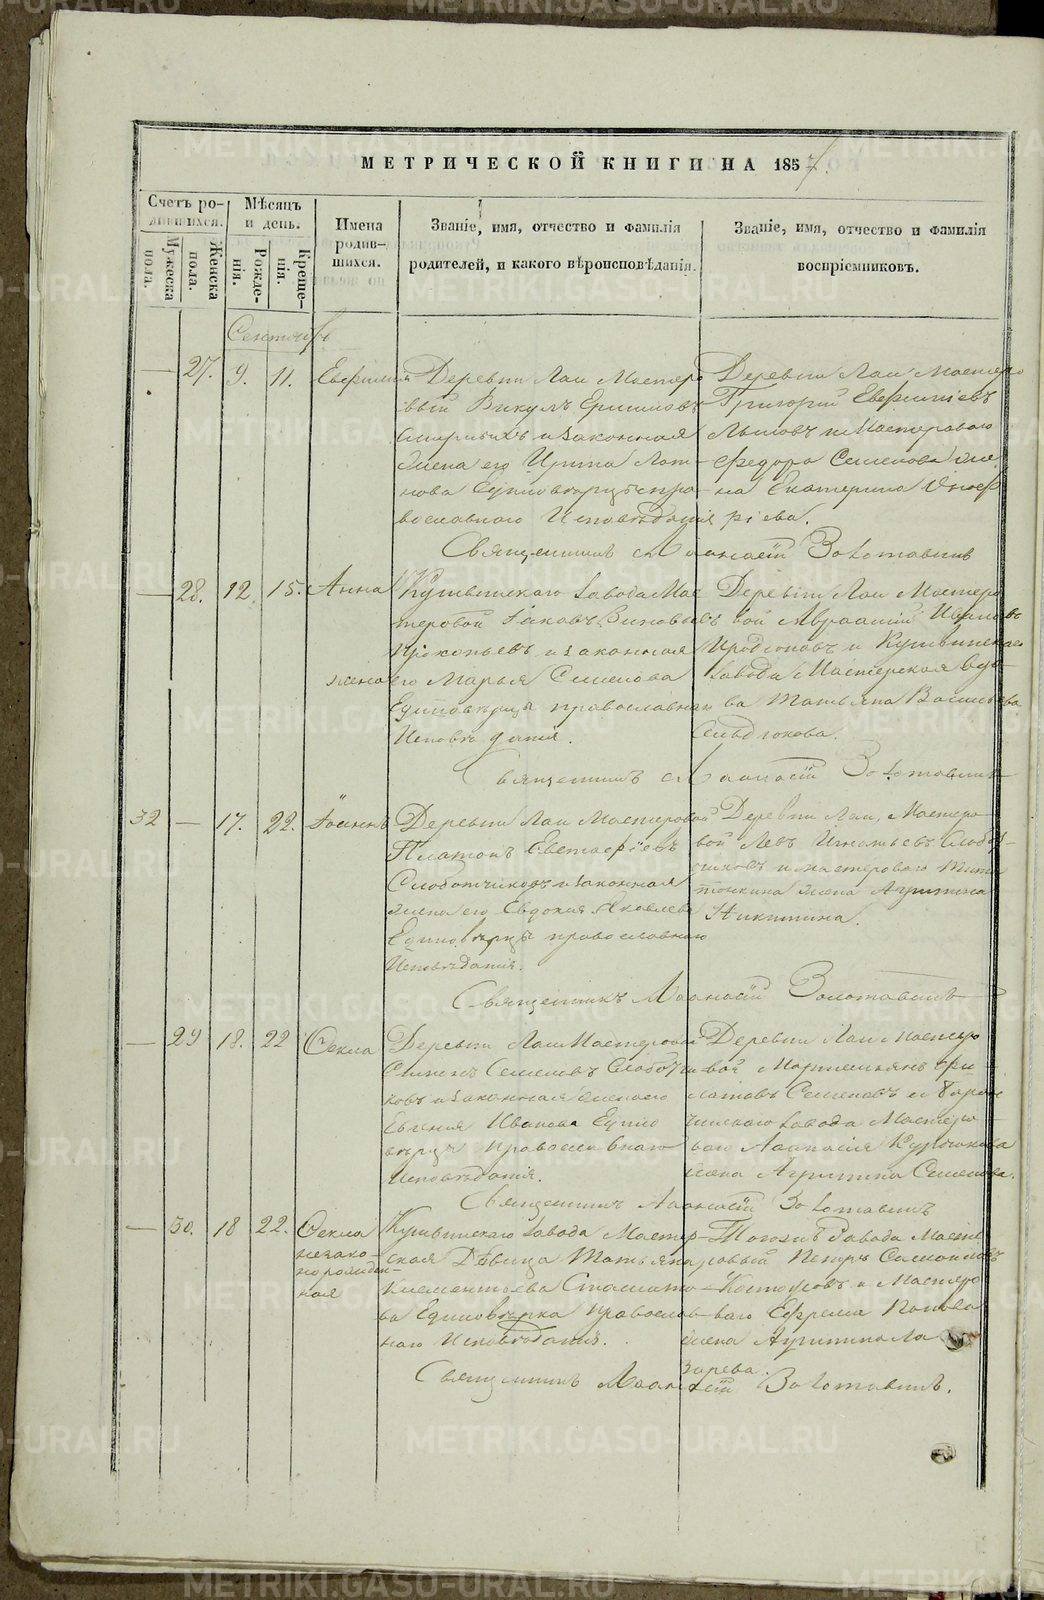 МЕТРИЧЕСКОЙ КНИГИ НА 1857.
Счетъ ро-
дившихся.
Мужеска
пола.
Женска
пола.
Мѣсяцъ
и день.
Рожде-
нія.
Креще-
нія.
Имена
родив-
шихся.
Званіе, имя, отчество и фамилія
родителей, и какого вѣроисповѣданія.
Званіе, имя, отчество и фамилія
воспріемниковъ.
Сентябрь
— 27. 9. 11.
Деревни Лаи Мастеро
вый Викулъ
и законная
жена его Ирина Лог-
нова Единовѣрцы пра-
вославнаго Исповѣданія
Деревни Лаи Мастеро
Григорій Евфиміевъ
и Мастероваго
Федора Семенова же-
на Екатерина Онуф
ріева.
Священникъ Аѳанасій Золотавинъ
— 28. 12. 15. Анна
Кушвинскаго завода Мас
теровой Іаковъ Зиновьевъ
Прокопьевъ и законная
жена его Марья Семенова
Единовѣрцы православнаго
Исповѣданія.
Деревни Лаи Мастеро
вой Авраамій Ивановъ
Иродіоновъ и Кушвинскаго
завода Мастерская вдо-
ва Татьяна Васильева
Священникъ Аѳанасій Золотавинъ
32 — 17. 22. Іоаннъ
Деревни Лаи Мастеровой
Платонъ Евстафіевъ
Слободчиковъ и законная
жена его Евдокия Яковлева
Единовѣрцы православнаго
Исповѣданія.
Деревни Лаи, Мастеро
вой Левъ Игнатьевъ Слобод-
чиковъ и мастероваго Тита
жена Агрипина
Никитина.
Священникъ Аѳанасій Золотавинъ
— 29 18. 22 Ѳекла
Деревни Лаи Мастеровой
Симеонъ Семеновъ Слободчи-
ковъ и законная жена его
Евгения Иванова Едино
вѣрцы православнаго
Исповѣданія.
Деревни Лаи Мастеро
вой
Семеновъ и Баран
чинскаго завода Мастеро
ваго Аѳанасія
жена Агрипина Семенова.
Священникъ Аѳанасій Золотавинъ
— 30. 18 22. Ѳекла
незако-
норожден-
ная
Кушвинскаго завода Мастер-
ская Дѣвица Татьяна
Климентьева
ва Единовѣрка православ-
наго Исповѣданія.
Тогожъ Завода Масте
ровый Петръ Самойловъ
и Мастеро
ваго Ефрема Попова
жена Агрипина Ла
зарева.
Священникъ Аѳанасій Золотавинъ.
METRIKI.GASO-URAL.RU